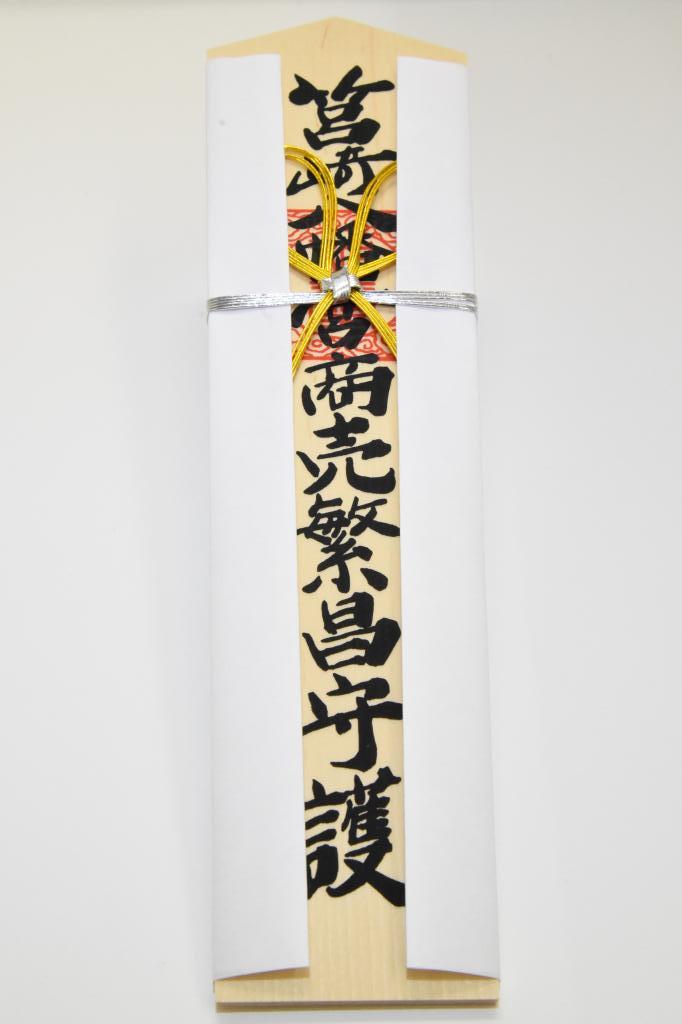 筥崎八幡宮商売繁昌守護